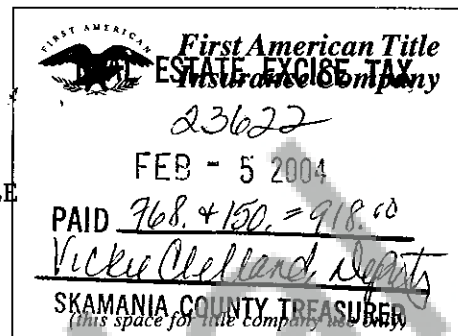 FIRST AMERICAN
First American Title
Insurance Company
REAL ESTATE EXCISE TAX
23622
FEB - 5 2004
LE
PAID 768. + 150. = 918.00
Vickie Clelland, Deputy
SKAMANIA COUNTY TREASURER
(this space for title company use only)